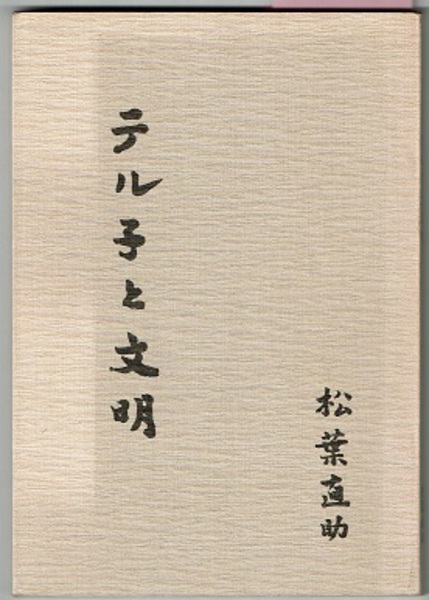 テル子と文明
松葉直助